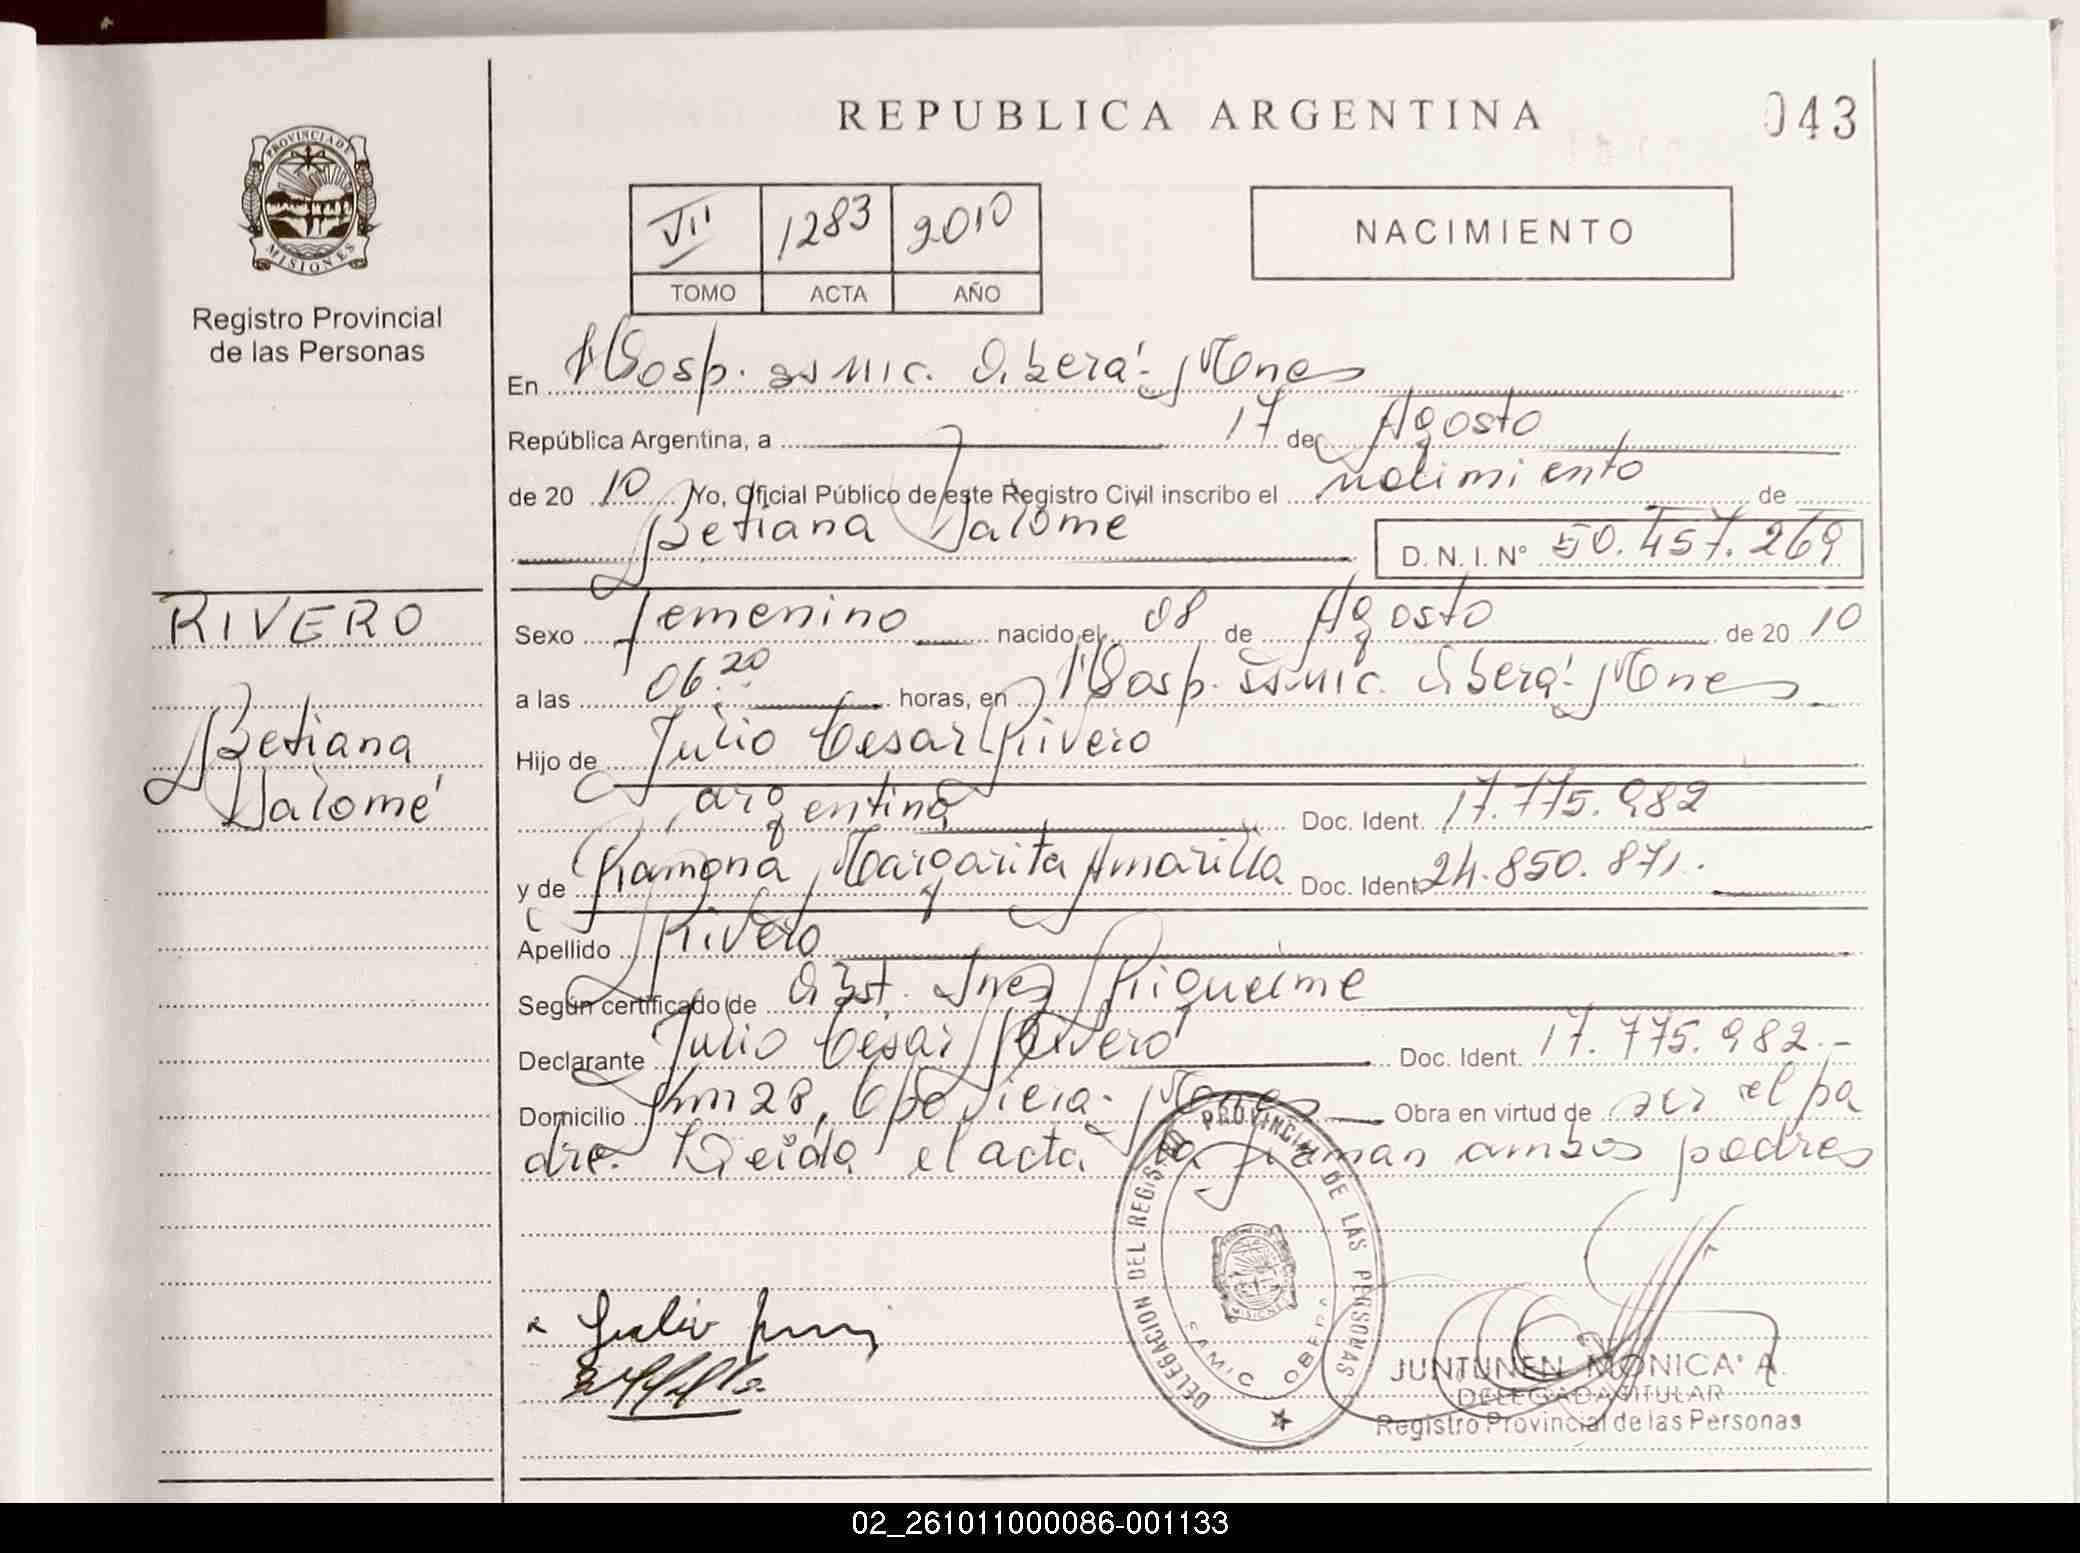 REPUBLICA ARGENTINA
043
PROVINCIA DE
MISIONES
Registro Provincial
de las Personas
VII 1283 2010
TOMO ACTA AÑO
NACIMIENTO
En Hosp. SAMIC. Oberá - Mnes
República Argentina, a 17 de Agosto
de 20 10 Yo, Oficial Público de este Registro Civil inscribo el nacimiento de
Betiana Salome D. N. I. N° 50.457.269
RIVERO
Betiana
Salomé
Sexo Femenino nacido el 08 de Agosto de 20 10
a las 06:20 horas, en Hosp. SAMIC. Oberá - Mnes
Hijo de Julio Cesar Rivero
argentina Doc. Ident. 17.775.982
y de Ramona Margarita Amarilla Doc. Ident. 24.850.871.
Apellido Rivero
Según certificado de Obst. Inez Riquelme
Declarante Julio César Rivero Doc. Ident. 17.775.982.-
Domicilio Km 28, - Mnes Obra en virtud de ser el pa
dre. Leída el acta la firman ambos padres
DELEGACION DEL REGISTRO PROVINCIAL DE LAS PERSONAS
MISIONES
SAMIC OBERA
Julio
JUNTUNEN MONICA A.
DELEGADA TITULAR
Registro Provincial de las Personas
02_261011000086-001133